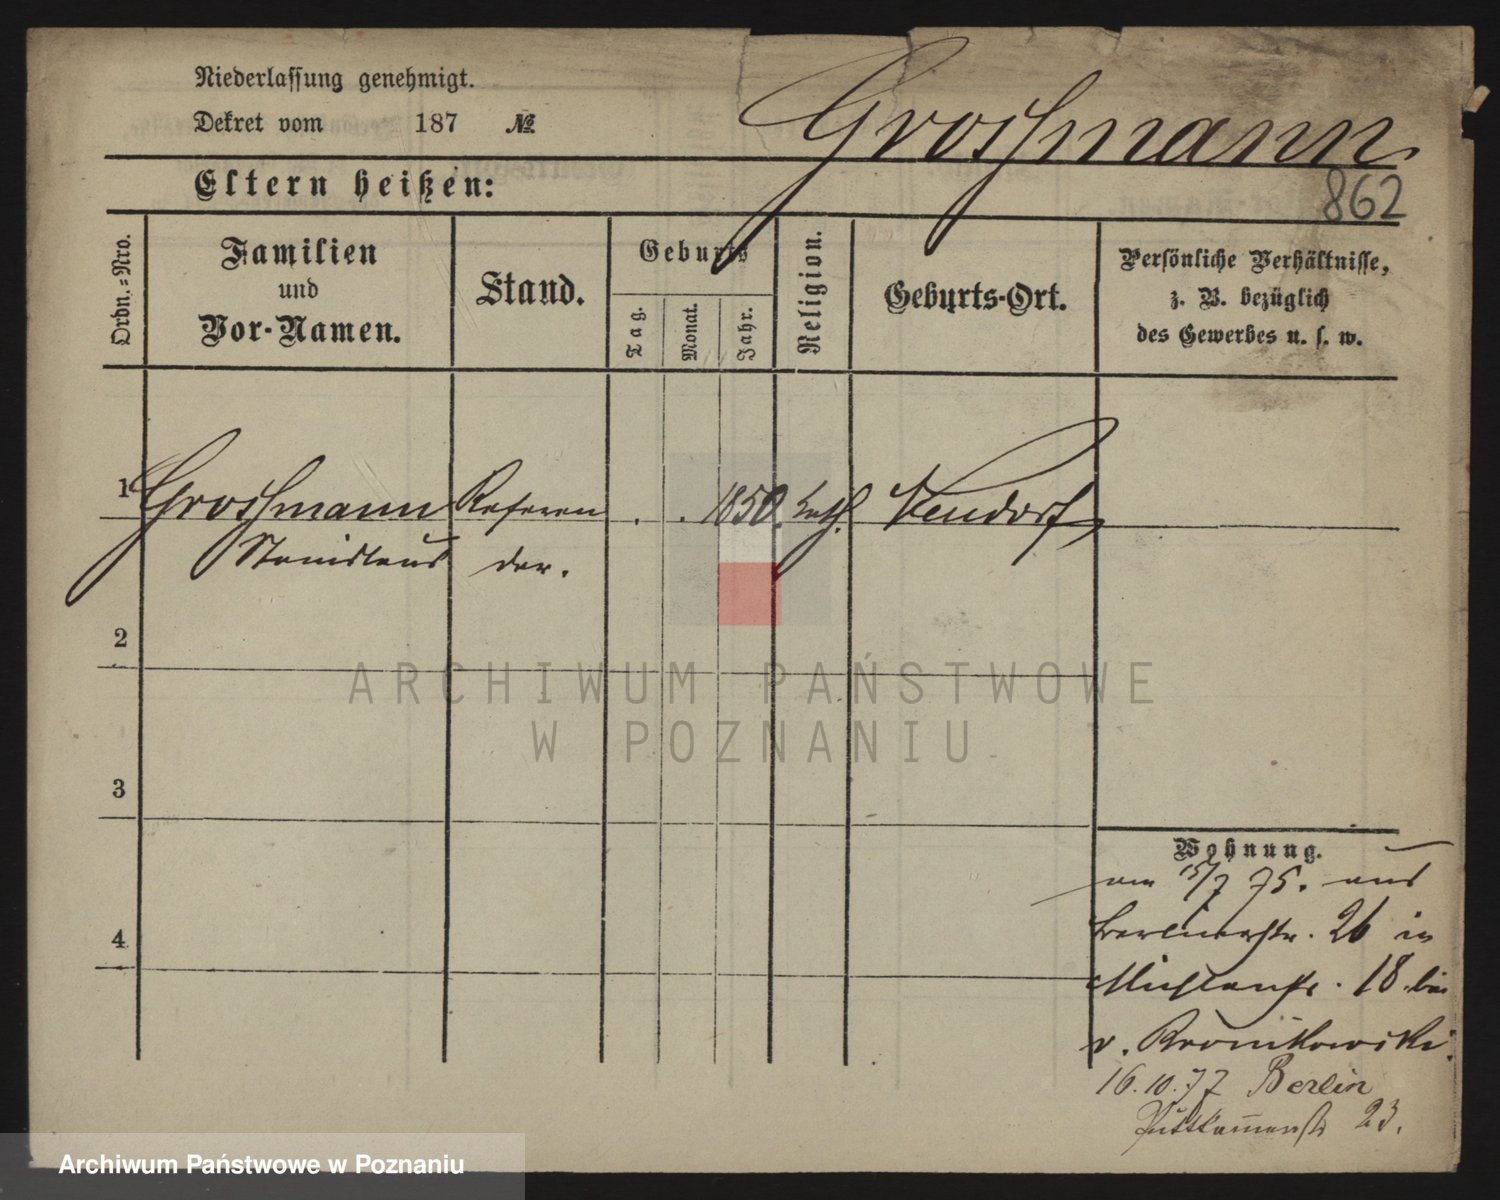 Niederlassung genehmigt.
Dekret vom 187 №
Großmann
862
Eltern heißen:
Ordn.-Nro.
Familien
und
Vor-Namen.
Stand.
Geburts
Tag.
Monat.
Jahr.
Religion.
Geburts-Ort.
Persönliche Verhältnisse,
z. B. bezüglich
des Gewerbes u. s. w.
1 Großmann Referen 1850. kath. Neudorf
Stanislaus der.
2
3
4
Wohnung.
am 15/7 75. aus
Berlinerstr. 26 in
Mühlenstr. 18 bei
v. Bronikowski.
16.10.77 Berlin
Puttkamerstr 23.
ARCHIWUM PAŃSTWOWE
W POZNANIU
Archiwum Państwowe w Poznaniu